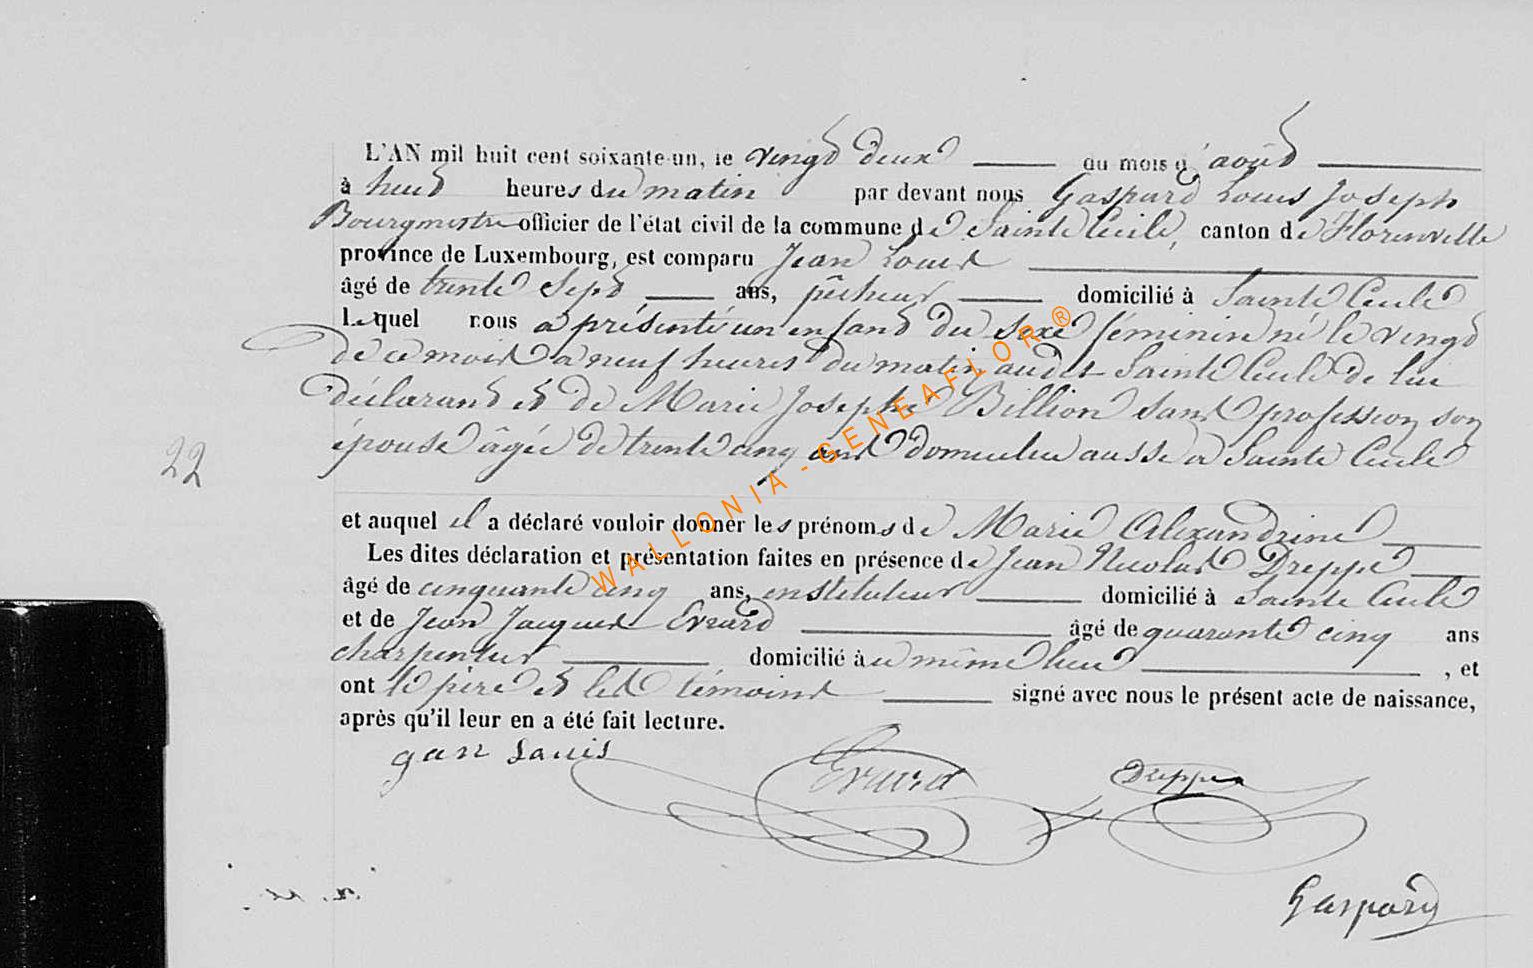 L'AN mil huit cent soixante-un, le vingt deux du mois d'août
à huit heures du matin par devant nous Gaspard Louis Joseph
Bourgmestre officier de l'état civil de la commune de Sainte Cécile, canton de Florenville
province de Luxembourg, est comparu Jean Louis
âgé de trente sept ans, pêcheur domicilié à Sainte Cécile
lequel nous a présenté un enfant du sexe féminin né le vingt
de ce mois à neuf heures du matin audit Sainte Cécile de lui
déclarant et de Marie Josephe Billion sans profession son
épouse âgée de trente cinq ans domiciliée aussi à Sainte Cécile
22
et auquel il a déclaré vouloir donner les prénoms de Marie Alexandrine
Les dites déclaration et présentation faites en présence de Jean Nicolas Dreppe
âgé de cinquante cinq ans, instituteur domicilié à Sainte Cécile
et de Jean Jacques Evrard âgé de quarante cinq ans
charpentier domicilié au même lieu, et
ont le père et les témoins signé avec nous le présent acte de naissance,
après qu'il leur en a été fait lecture.
gan Louis Evrard Dreppe
Gaspard
WALLONIA - GENEAFLOR ®